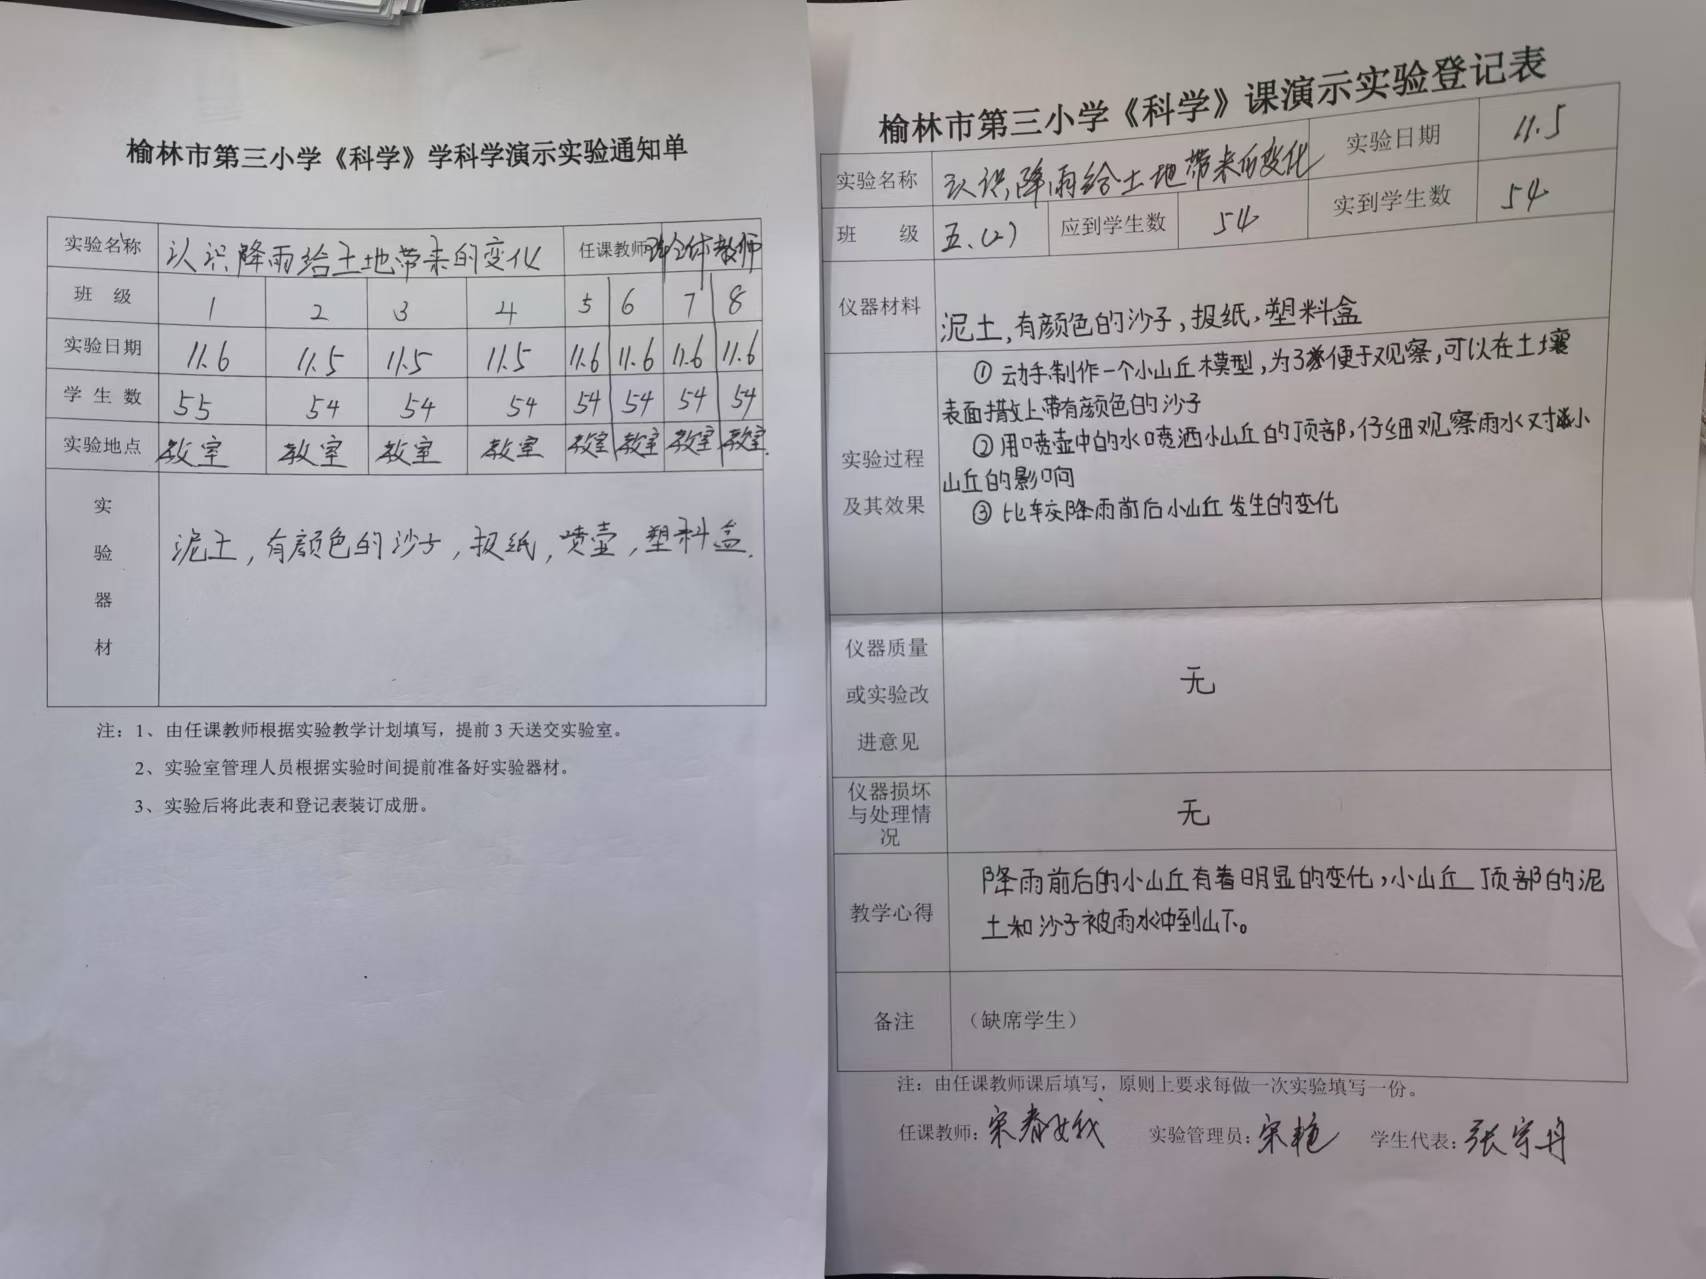 榆林市第三小学《科学》学科学演示实验通知单
实验名称 认识降雨给土地带来的变化 任课教师 全体教师
班 级 1 2 3 4 5 6 7 8
实验日期 11.6 11.5 11.5 11.5 11.6 11.6 11.6 11.6
学 生 数 55 54 54 54 54 54 54 54
实验地点 教室 教室 教室 教室 教室 教室 教室 教室.
实
验
器
材
泥土,有颜色的沙子,报纸,喷壶,塑料盒.
注：1、由任课教师根据实验教学计划填写，提前3天送交实验室。
2、实验室管理人员根据实验时间提前准备好实验器材。
3、实验后将此表和登记表装订成册。
榆林市第三小学《科学》课演示实验登记表
实验名称 认识降雨给土地带来的变化 实验日期 11.5
班 级 五.(2) 应到学生数 54 实到学生数 54
仪器材料 泥土,有颜色的沙子,报纸,塑料盒
实验过程
及其效果
①动手制作一个小山丘模型,为了便于观察,可以在土壤
表面撒上带有颜色的沙子
②用喷壶中的水喷洒小山丘的顶部,仔细观察雨水对小
山丘的影响
③比较降雨前后小山丘发生的变化
仪器质量
或实验改
进意见
无
仪器损坏
与处理情
况
无
教学心得
降雨前后的小山丘有着明显的变化,小山丘顶部的泥
土和沙子被雨水冲到山下。
备注 （缺席学生）
注：由任课教师课后填写，原则上要求每做一次实验填写一份。
任课教师: 宋春娥 实验管理员: 宋艳 学生代表: 张宇丹